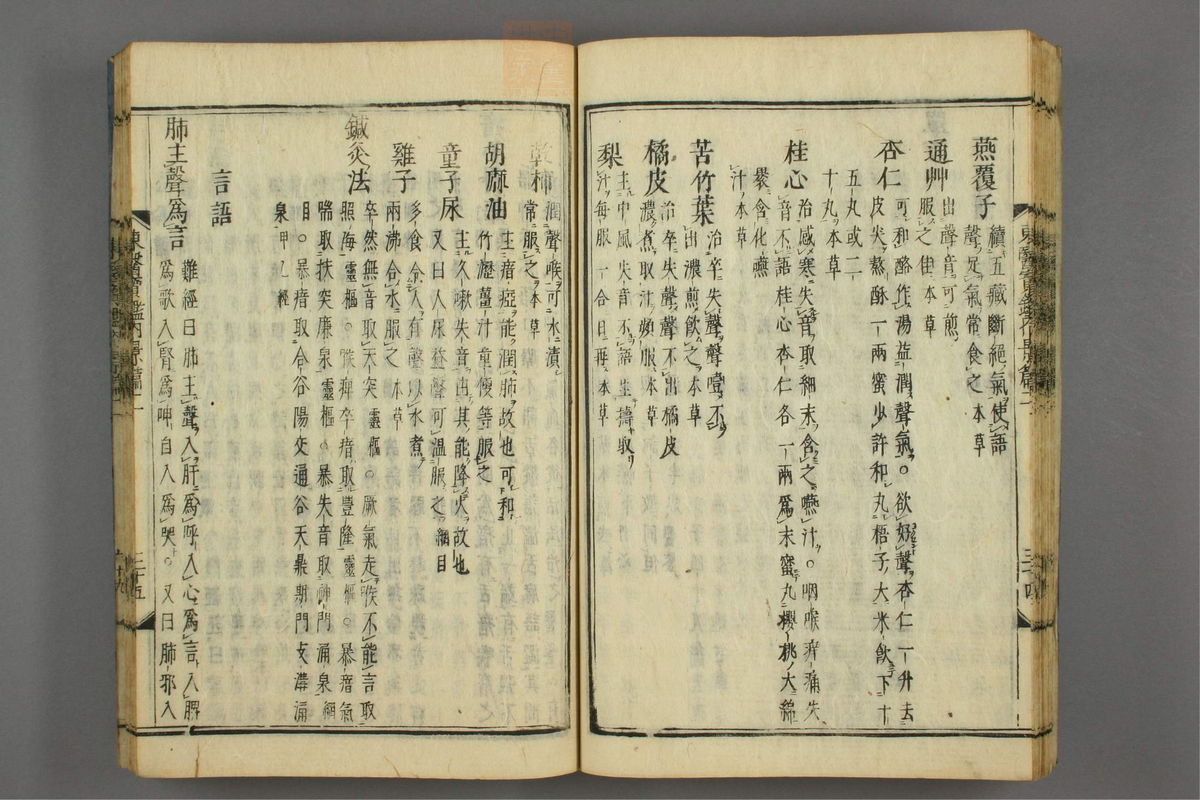 燕覆子
續五藏斷絕氣使語
聲足氣常食之本草
通艸
出聲音可煎
服之佳本草
杏仁
可和酪作湯益潤聲氣○欲好聲杏仁一升去
皮尖熬酥一兩蜜少許和丸梧子大米飮下十
五丸或二
十丸本草
桂心
治感寒失音取細末含之嚥汁○咽喉痒痛失
音不語桂心杏仁各一兩爲末蜜丸櫻桃大綿
褁含化嚥
汁本草
苦竹葉
治卒失聲聲噎不
出濃煎飮之本草
橘皮
治卒失聲聲不出橘皮
濃煮取汁頻服本草
梨
主中風失音不語生擣取
汁每服一合日再本草
乾柿
潤聲喉可水漬
常服之本草
胡麻油
主瘖瘂能潤肺故也可和
竹瀝薑汁童便等服之
童子尿
主久嗽失音也其能降火故也
又曰人尿益聲可溫服之綱目
雞子
多食令人有聲以水煮
兩沸合水服之本草
鍼灸法
卒然無音取天突靈樞○厥氣走喉不能言取
照海靈樞○喉痺卒瘖取豐隆靈樞○暴瘖氣
哽取扶突廉泉靈樞○暴失音取神門涌泉綱
目○暴瘖取合谷陽交通谷天鼎期門支溝涌
泉甲乙經
言語
肺主聲爲言
難經曰肺主聲入肝爲呼入心爲言入脾
爲歌入腎爲呻自入爲哭○又曰肺邪入
東醫寶鑑內景篇二
三十五
三十四